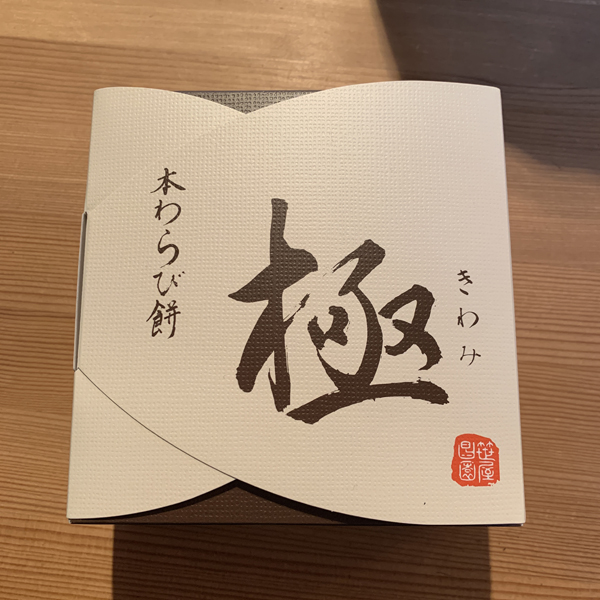 極
きわみ
本わらび餅
笹屋
昌園